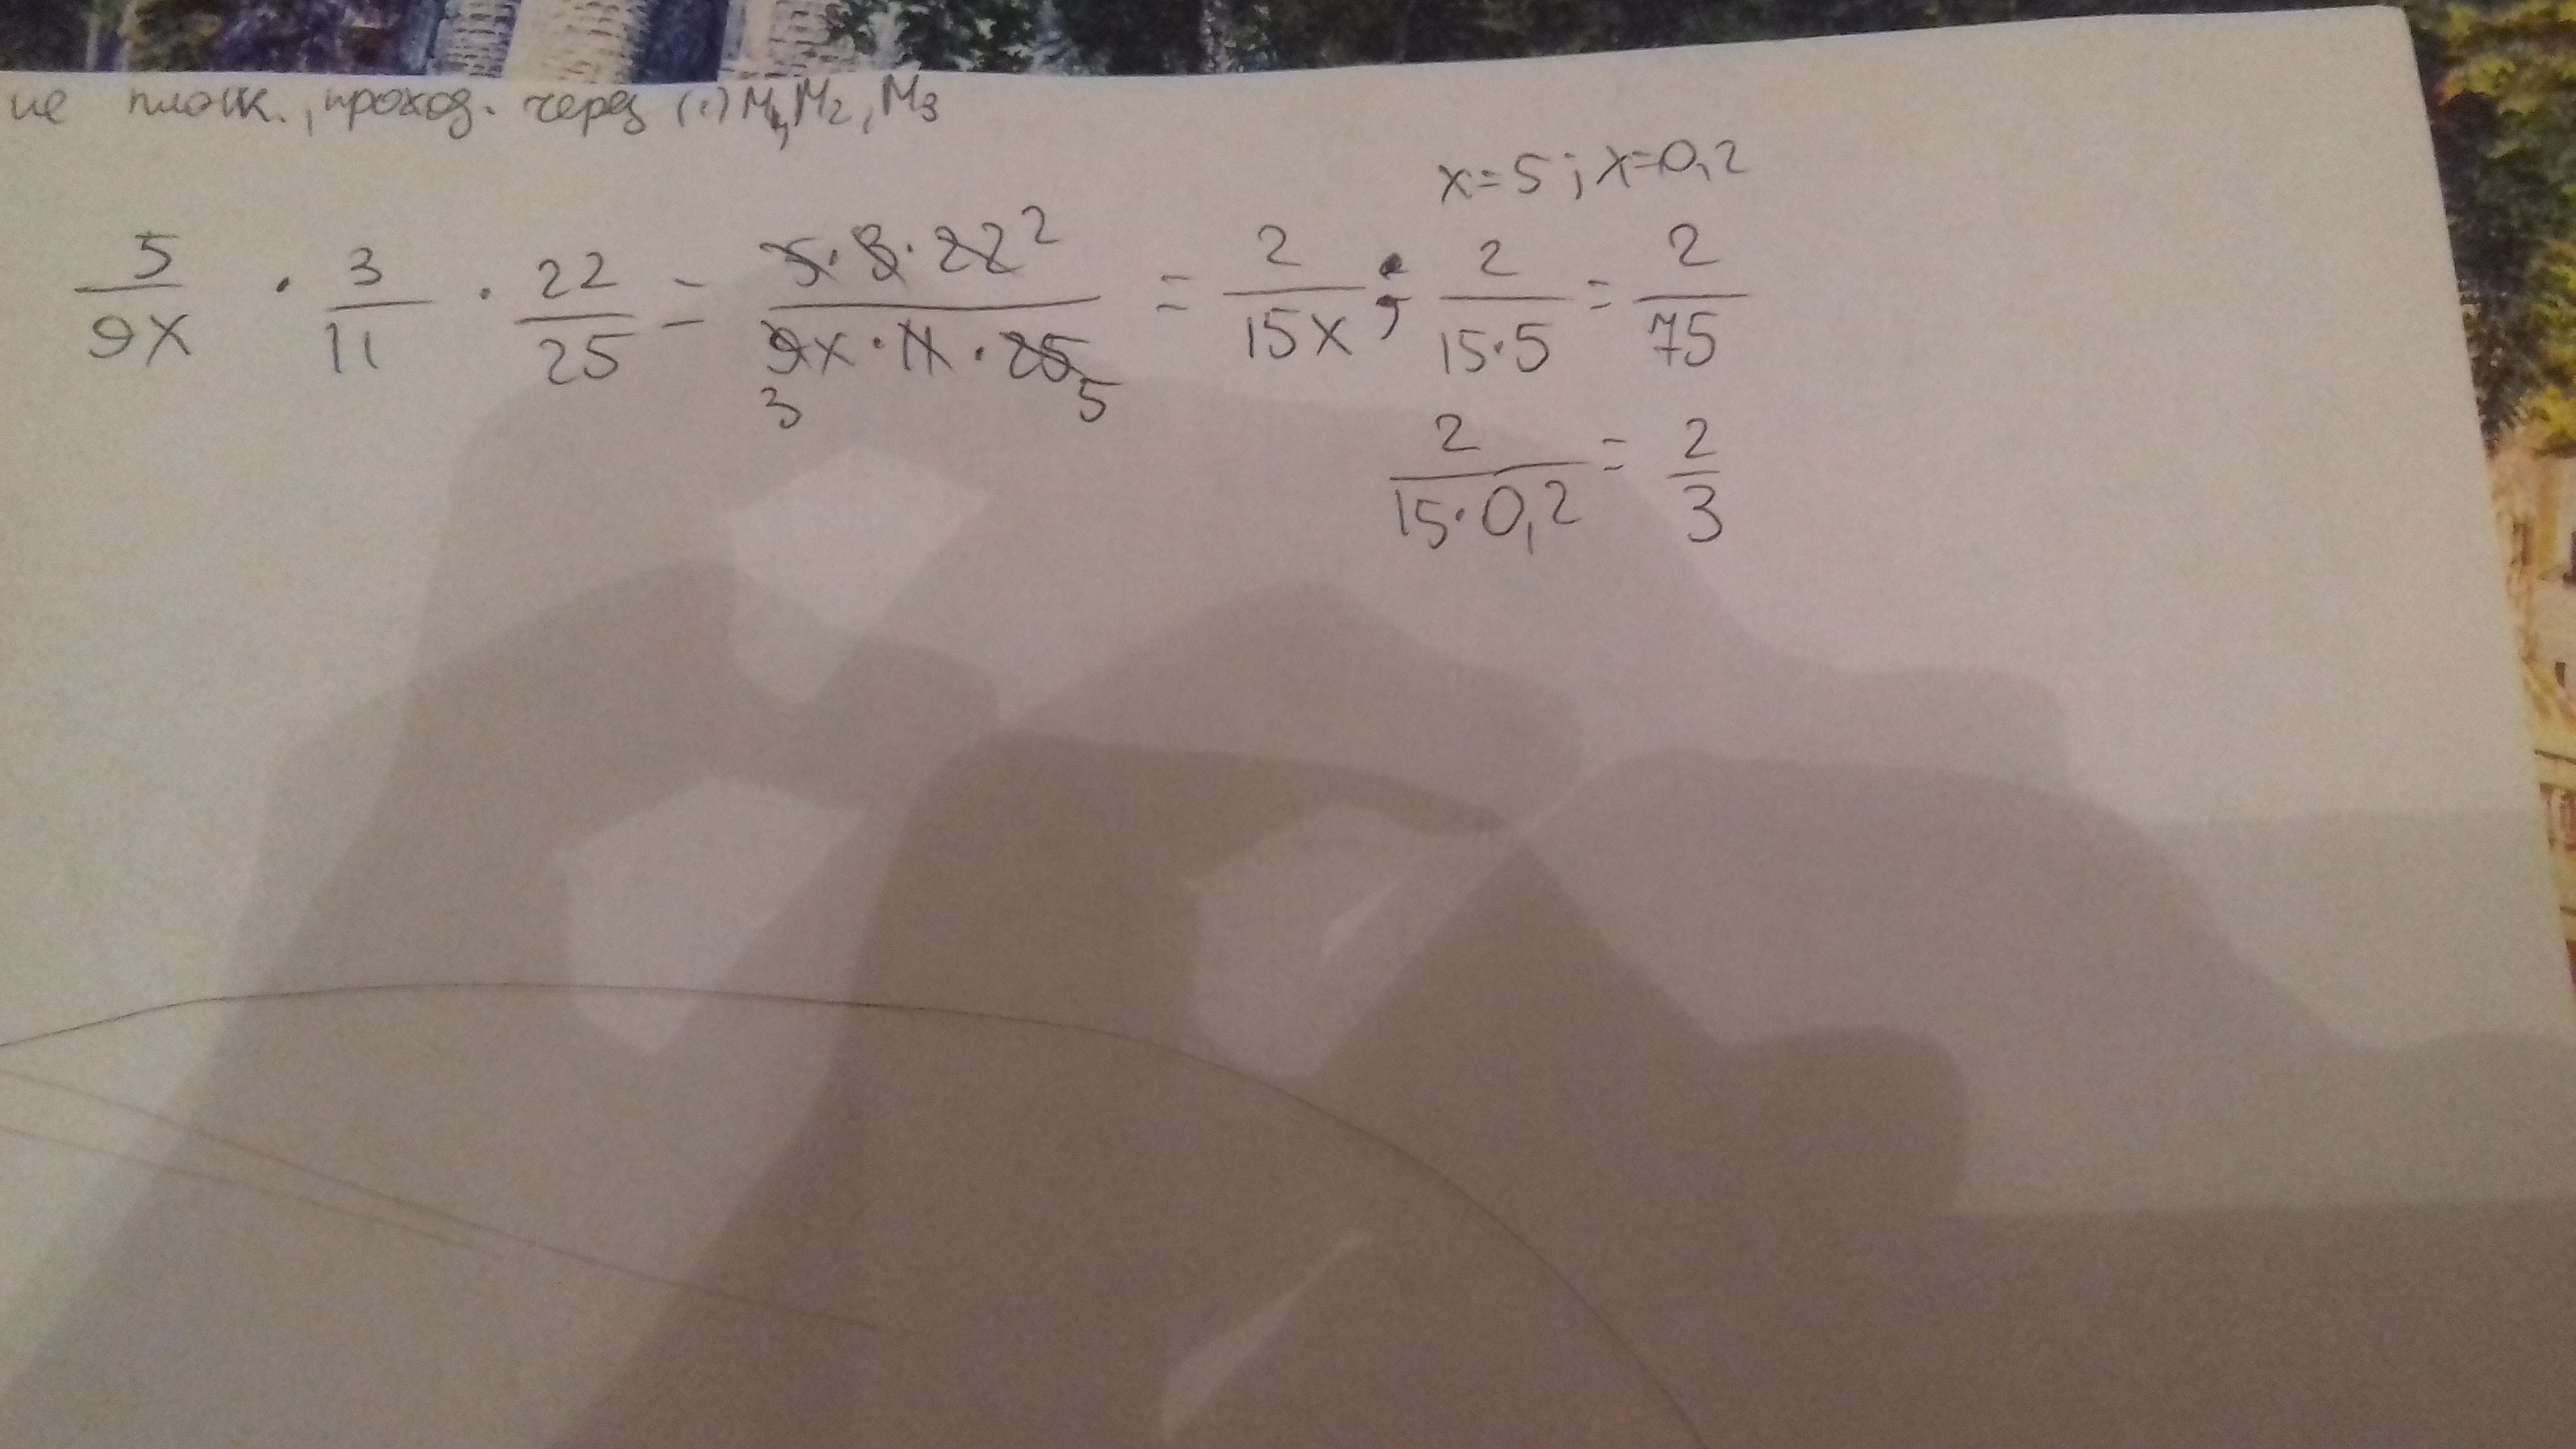 ие плоск., проход. через (·) M1, M2, M3
x=5; x=0,2
5/9x · 3/11 · 22/25 = 5·3·22 2/9x·11·25 3 5 = 2/15x ; 2/15·5 = 2/75
2/15·0,2 = 2/3